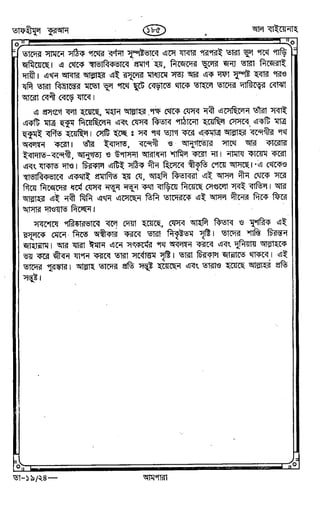 তাফহীমুল কুরআন
১৮৫
আল বাইয়েনাহ
তাদের সামনে সঠিক পথের বর্ণনা সুস্পষ্টভাবে এসে যাবার পরপরই তারা ভুল পথে পাড়ি
জমিয়েছে। এ থেকে স্বাভাবিকভাবে প্রমাণ হয়, নিজেদের ভুলের জন্য তারা নিজেরাই
দায়ী। এখন আবার আল্লাহর এই রসূলের মাধ্যমে সত্য আর এক দফা সুস্পষ্ট হবার পরও
যদি তারা বিভ্রান্তের মতো ভুল পথে ছুটে বেড়াতে থাকে তাহলে তাদের দায়িত্বের বোঝা
আরো বেশী বেড়ে যাবে।
এ প্রসংগে বলা হয়েছে, মহান আল্লাহর পক্ষ থেকে যেসব নবী এসেছিলেন তাঁরা সবাই
একটি মাত্র হুকুম দিয়েছিলেন এবং যেসব কিতাব পাঠানো হয়েছিল সেসবে একটি মাত্র
হুকুমই বর্ণিত হয়েছিল। সেটি হচ্ছে : সব পথ ত্যাগ করে একমাত্র আল্লাহর বন্দেগীর পথ
অবলম্বন করো। তাঁর ইবাদাত, বন্দেগী ও আনুগত্যের সাথে আর কারোর
ইবাদাত-বন্দেগী, আনুগত্য ও উপাসনা আরাধনা শামিল করো না। নামায কায়েম করো
এবং যাকাত দাও। চিরকাল এটিই সঠিক দীন হিসেবে স্বীকৃতি পেয়ে আসছে। এ থেকেও
স্বাভাবিকভাবে একথাই প্রমাণিত হয় যে, আহলি কিতাবরা এই আসল দীন থেকে সরে
গিয়ে নিজেদের ধর্মে যেসব নতুন নতুন কথা বাড়িয়ে নিয়েছে সেগুলো সবই বাতিল। আর
আল্লাহর এই নবী যিনি এখন এসেছেন তিনি তাদেরকে এই আসল দীনের দিকে ফিরে
আসার দাওয়াত দিচ্ছেন।
সবশেষে পরিষ্কারভাবে বলে দেয়া হয়েছে, যেসব আহলি কিতাব ও মুশরিক এই
রসূলকে মেনে নিতে অস্বীকার করবে তারা নিকৃষ্টতম সৃষ্টি। তাদের শাস্তি চিরন্তন
জাহান্নাম। আর যারা ঈমান এনে সৎকর্মের পথ অবলম্বন করবে এবং দুনিয়ায় আল্লাহকে
ভয় করে জীবন যাপন করবে তারা সর্বোত্তম সৃষ্টি। তারা চিরকাল জান্নাতে থাকবে। এই
তাদের পুরস্কার। আল্লাহ তাদের প্রতি সন্তুষ্ট হয়েছেন এবং তারাও হয়েছে আল্লাহর প্রতি
সন্তুষ্ট।
তা-১৯/২৪—
আমপারা